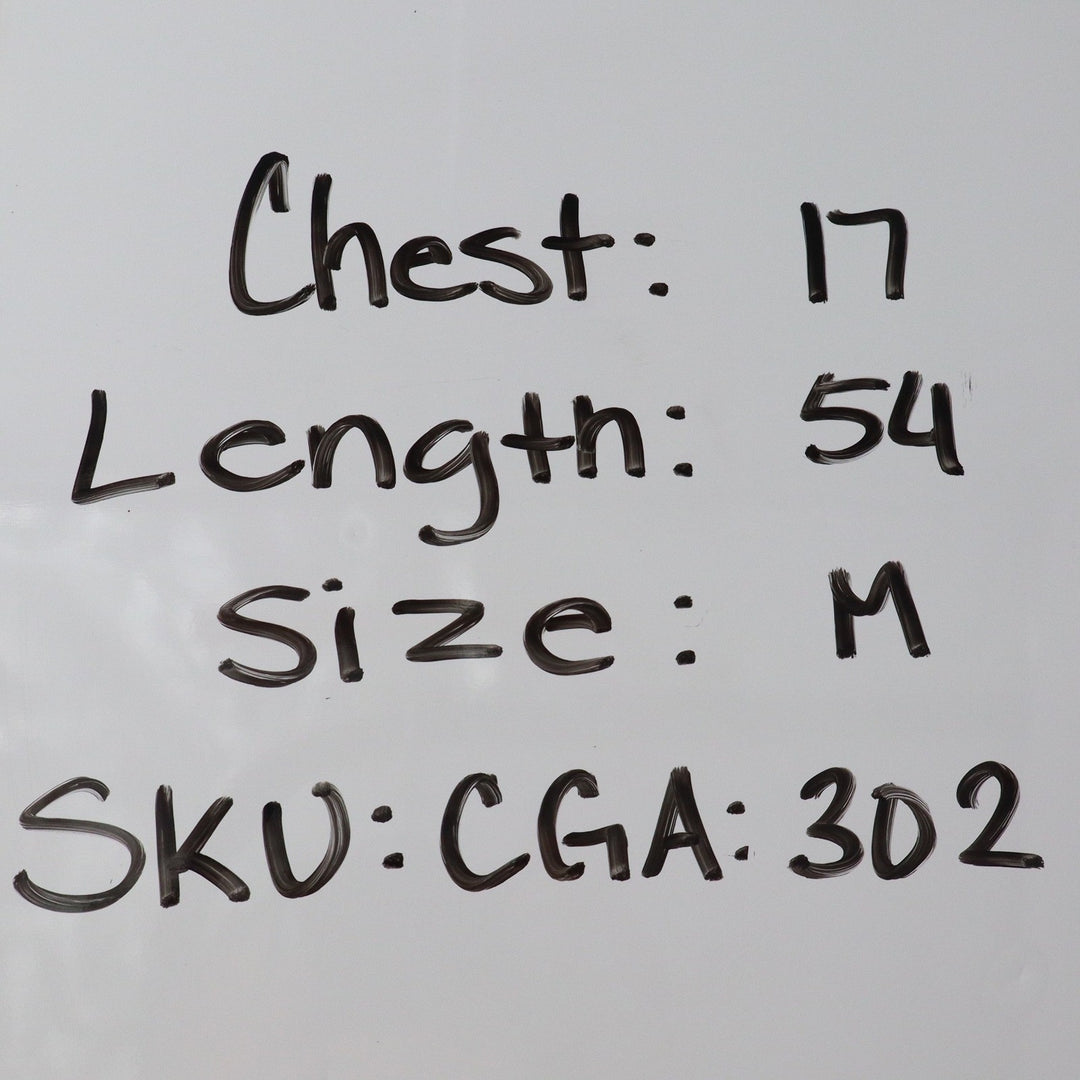 Chest: 17
Length: 54
Size: M
SKU: CGA: 302